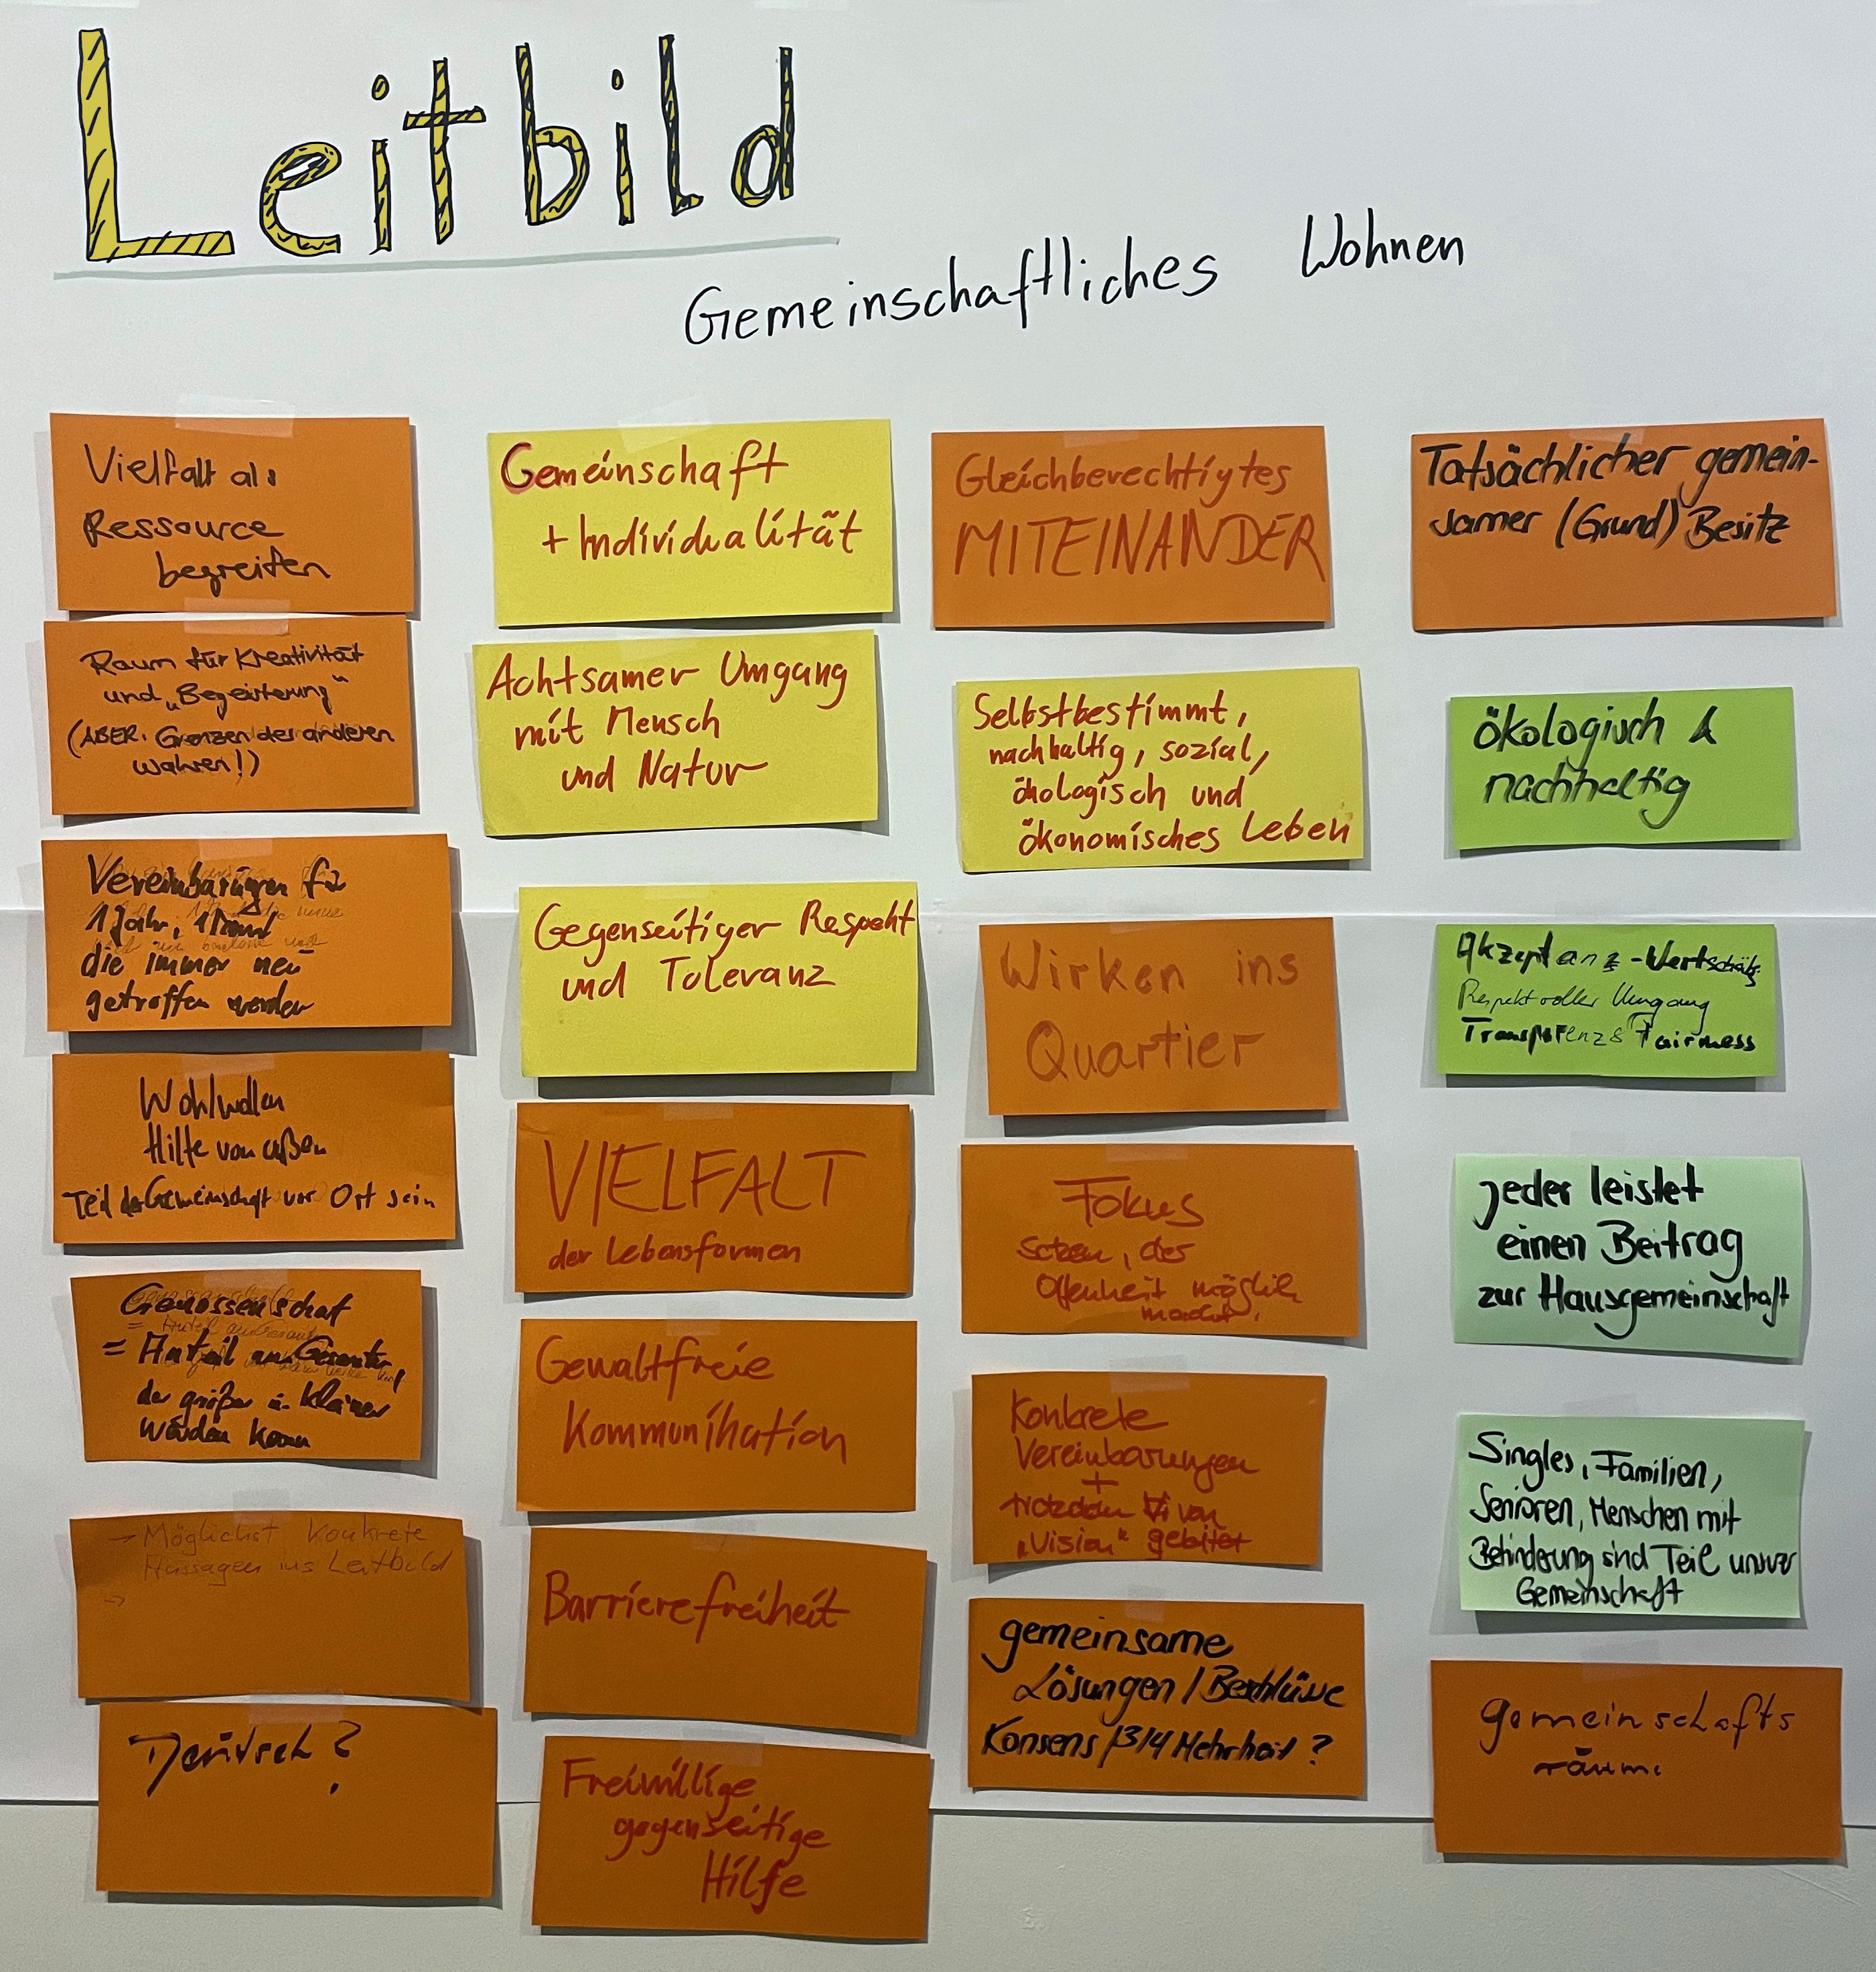 Leitbild
Gemeinschaftliches Wohnen
Vielfalt als
Ressource
begreifen
Raum für Kreativität
und „Begeisterung"
(ABER. Grenzen der anderen
wahren!)
Vereinbarungen für
1 Jahr, 1 Monat
die immer neu
getroffen werden
Wohlwollen
Hilfe von außen
Teil der Gemeinschaft vor Ort sein
Genossenschaft
= Anteil am Gesamten,
der größer u. kleiner
werden kann
→ Möglichst konkrete
Aussagen ins Leitbild
→
Deutsch?
Gemeinschaft
+ Individualität
Achtsamer Umgang
mit Mensch
und Natur
Gegenseitiger Respekt
und Toleranz
VIELFALT
der Lebensformen
Gewaltfreie
Kommunikation
Barrierefreiheit
Freiwillige
gegenseitige
Hilfe
Gleichberechtigtes
MITEINANDER
Selbstbestimmt,
nachhaltig, sozial,
ökologisch und
ökonomisches Leben
Wirken ins
Quartier
Fokus
Setzen, der
Offenheit möglich
macht.
Konkrete
Vereinbarungen
+
von
„Vision"
gemeinsame
Lösungen / Beschlüsse
Konsens / 3/4 Mehrheit?
Tatsächlicher gemein-
samer (Grund) Besitz
ökologisch &
nachhaltig
Akzeptanz - Wertschätzg
Respektvoller Umgang
Transparenz & Fairness
jeder leistet
einen Beitrag
zur Hausgemeinschaft
Singles, Familien,
Senioren, Menschen mit
Behinderung sind Teil unserer
Gemeinschaft
gemeinschafts
räume